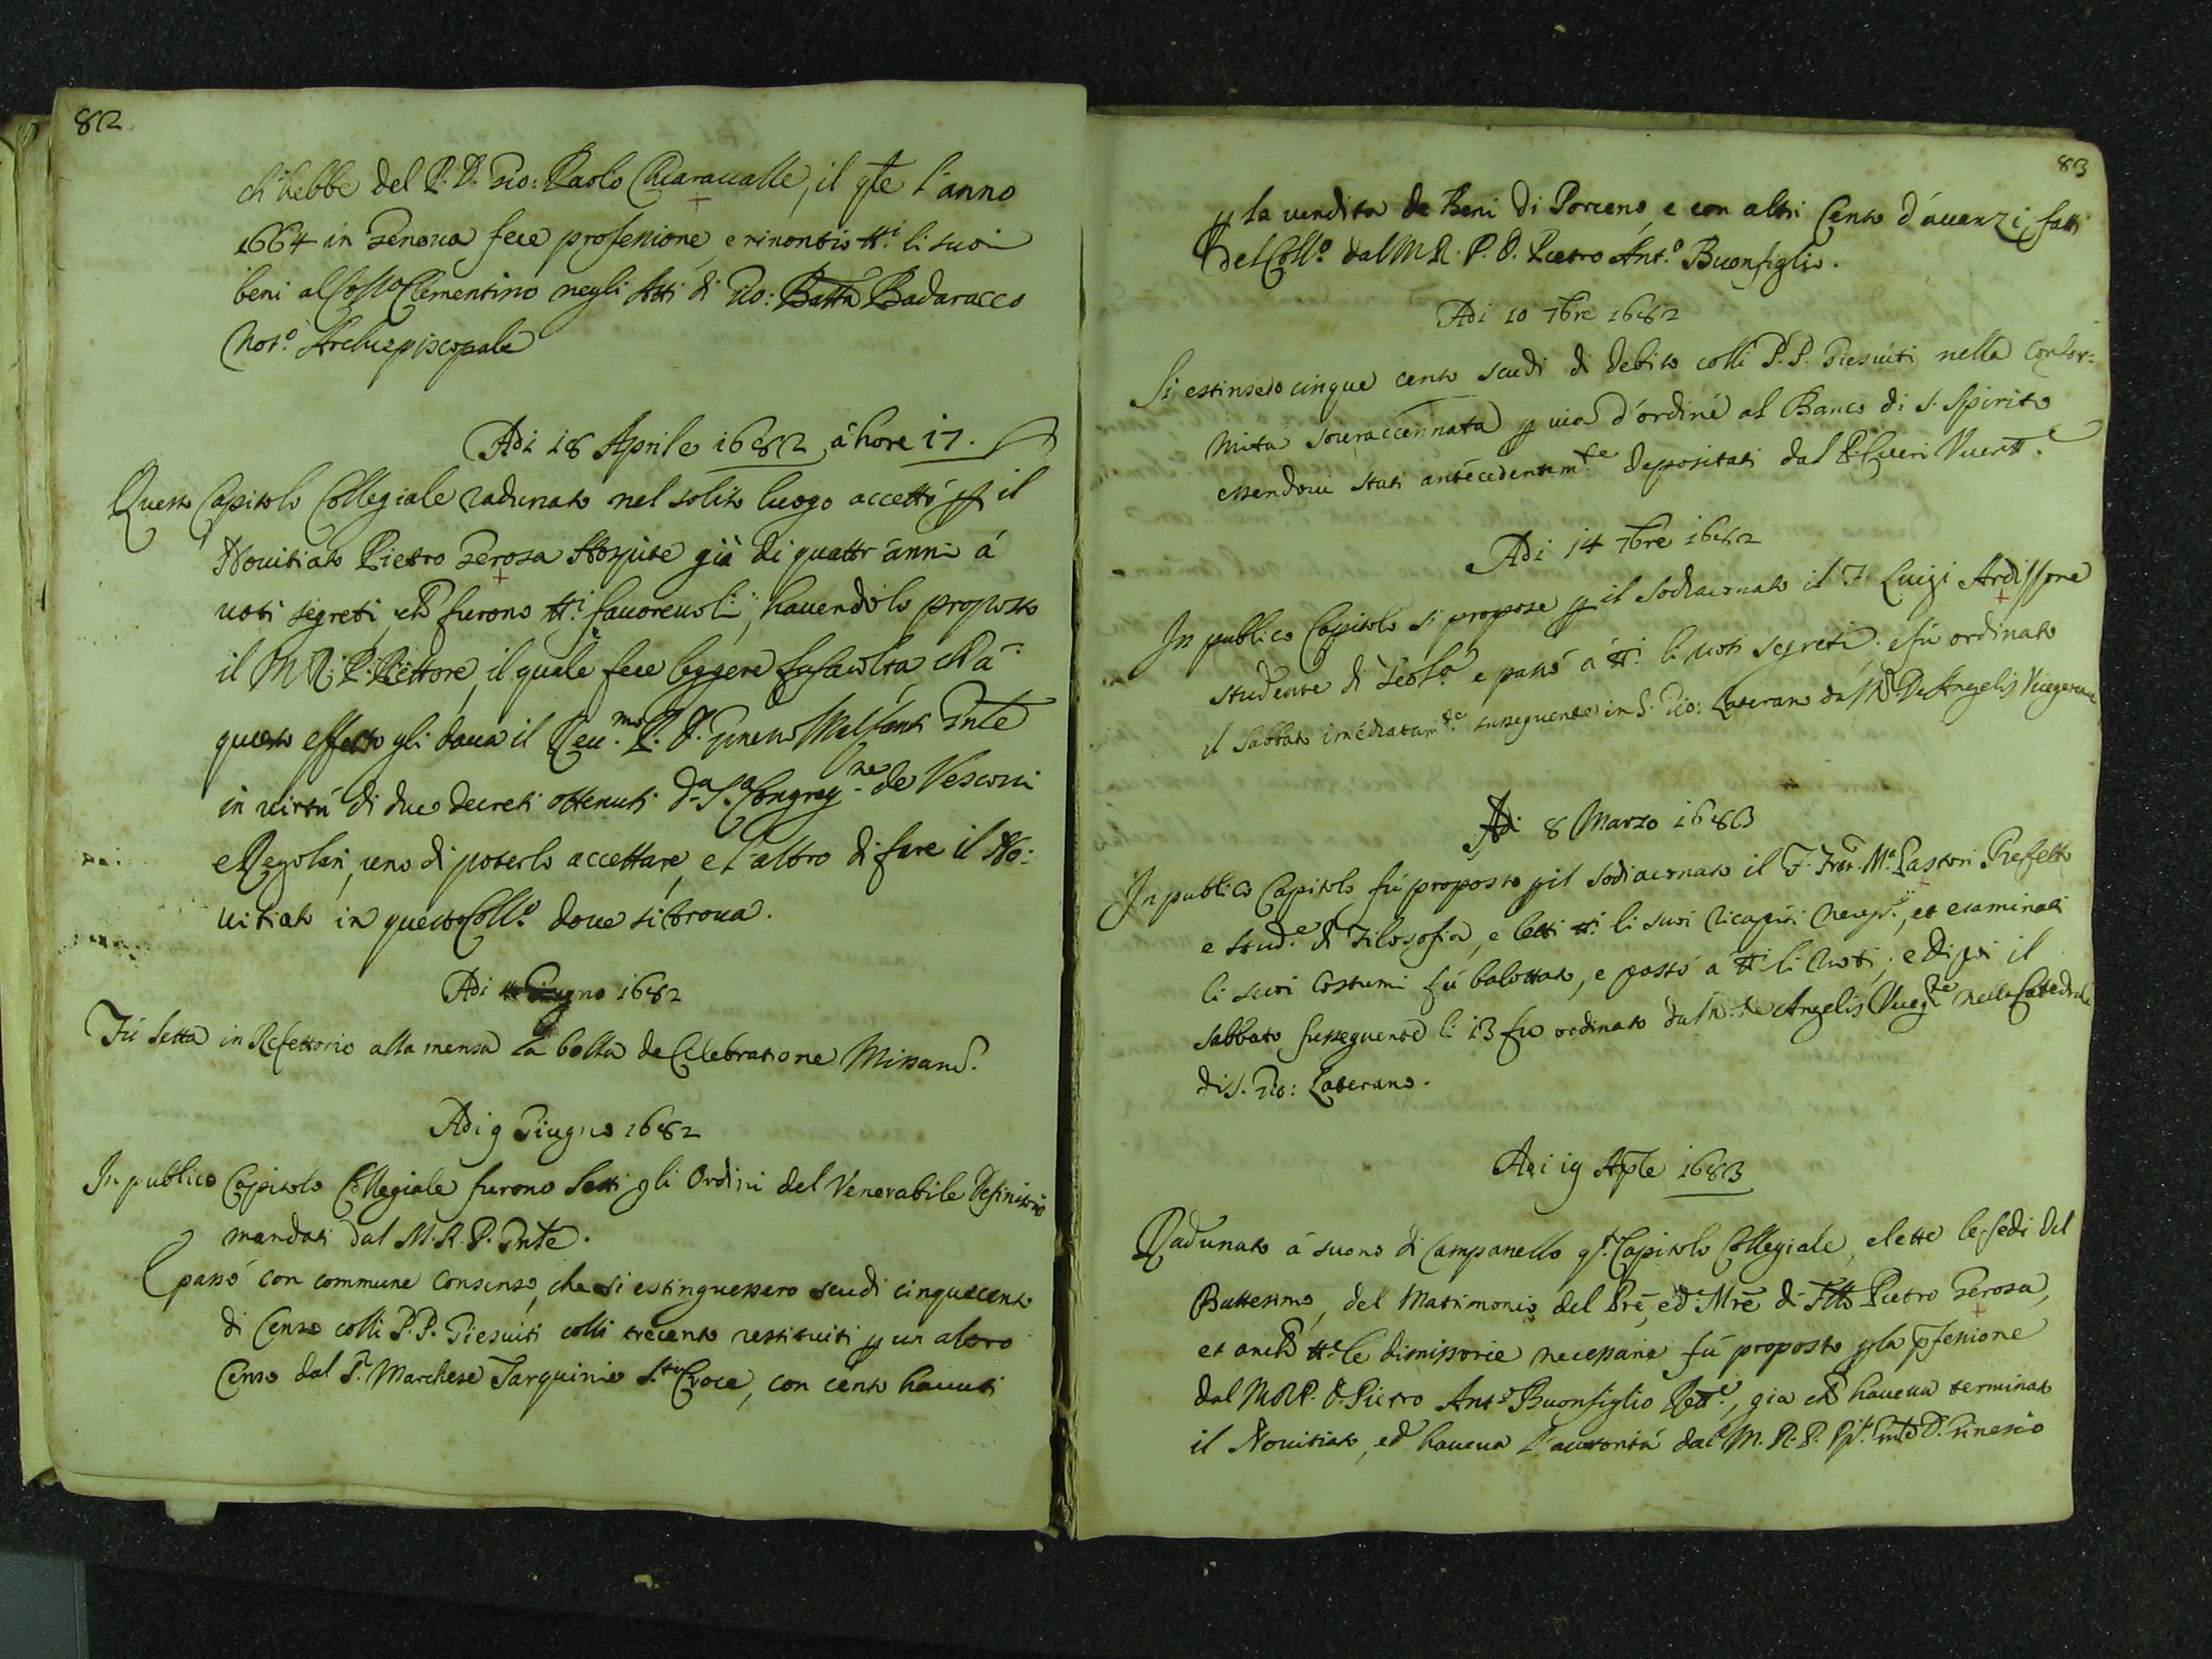 82
ch'hebbe del P. D. Gio: Paolo Chiaravalle, il qte l'anno
1664 in Genova fece professione, e rinontiò tti li suoi
beni al Collo Clementino negli Atti di Gio: Batta Badaracco
Noto Archiepiscopale
Adi 18 Aprile 1682 à hore 17.
Questo Capitolo Collegiale radunato nel solito luogo accettò p il
Novitiato Pietro Gerosa Hospite già di quattr'anni à
voti segreti, ch furono tti favorevoli, havendolo proposto
il M. R. P. Rettore, il quale fece leggere la facoltà, ch à
questo effetto gli dava il Reu.mo P. D. Malfanti Gnte
in virtù di due decreti ottenuti da Sa Congregne de Vescovi
e Regolari, uno di poterlo accettare, e l'altro di fare il No:
vitiato in questo Collo dove si trova.
Adi Giugno 1682
Fù letta in Refettorio alla mensa la bolla de Celebratione Missarũ.
Adi 9 Giugno 1682
In publico Capitolo Collegiale furono letti gli Ordini del Venerabile Definitorio
mandati dal M. R. P. Gnte.
E passò con commune consenso, che si estinguessero scudi cinquecento
di Censo colli P.P. Giesuiti colli trecento restituiti p un altro
Censo dal Sr Marchese Tarquinio S.ta Croce, con cento havuti
83
p la vendita de Beni di Porceno, e con altri Cento d'avanzi fatti
del Collo dal M. R. P. D. Pietro Anto Buonfiglio.
Adi 10 7bre 1682
Si estinsero cinque cento scudi di debito colli P.P. Giesuiti nella confor=
mità sovraccennata p via d'ordine al Banco di S. Spirito
essendovi stati antecedentemte depositati dal P.
Adi 14 7bre 1682
In publico Capitolo si propose p il sodiaconato il F. Luigi Ardissone
studente di Teola e passò à tti li voti segreti; e fù ordinato
il Sabbato imediatamte susseguente in S. Gio: Laterano da M. De Angelis Vicegerente
Adi 8 Marzo 1683
In publico Capitolo fù proposto p il sodiaconato il F. Fran. Ma Pastori Prefetto
e stude di Filosofia, e letti tti li suoi ricapiti necessi, et esaminati
li suoi costumi fù balottato, e passò a tti li voti; e di poi il
Sabbato susseguente li 13 fu ordinato da M. de Angelis Vicegte nella Catedrale
di S. Gio: Laterano.
Adi 19 Aple 1683
Radunato à suono di Campanello qto Capitolo Collegiale, e lette le fedi del
Battesimo, del Matrimonio del Prē, ed Mrē di Ftto Pietro Gerosa,
et anche tte le dimissorie necessarie fù proposto p la pfessione
dal M. R. P. D. Pietro Anto Buonfiglio Rette, gia ch haveva terminato
il Novitiato, ed haveva l'autorità dal M. R. P. Gnte D.